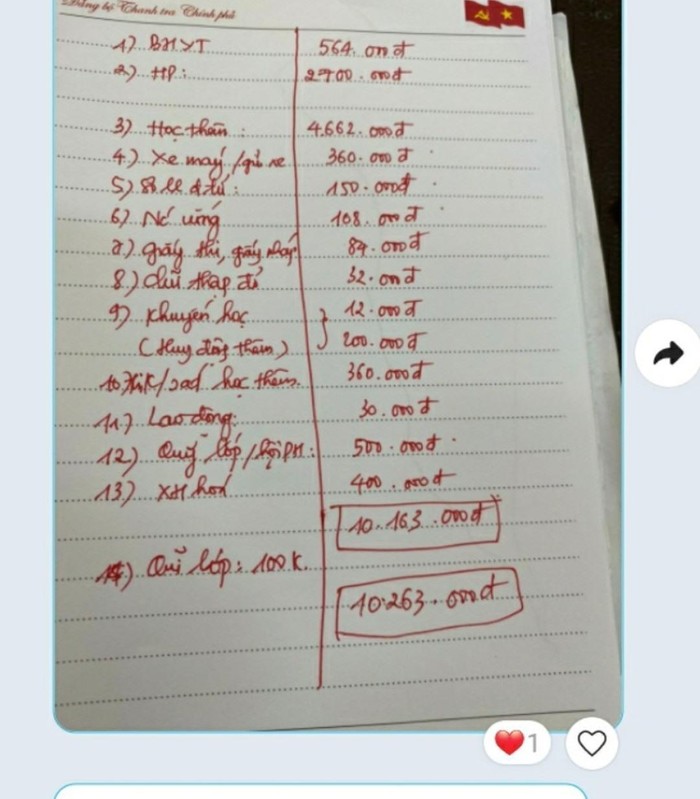 Đảng bộ Thanh tra Chính phủ
1) BHYT 564.000đ
2) HP: 2700.000đ
3) Học thêm: 4.662.000đ
4) Xe máy/gửi xe 360.000đ
5) đ tử: 150.000đ
6) Nc uống 108.000đ
7) giấy thi, giấy nháp 84.000đ
8) chữ thập đỏ 32.000đ
9) Khuyến học 12.000đ
(Huy động thêm) 200.000đ
10. học thêm. 360.000đ
11) Lao động: 30.000đ
12) Quỹ lớp/hội PH: 500.000đ
13) XH hoá 400.000đ
10.163.000đ
14) Quĩ lớp: 100K.
10.263.000đ
1